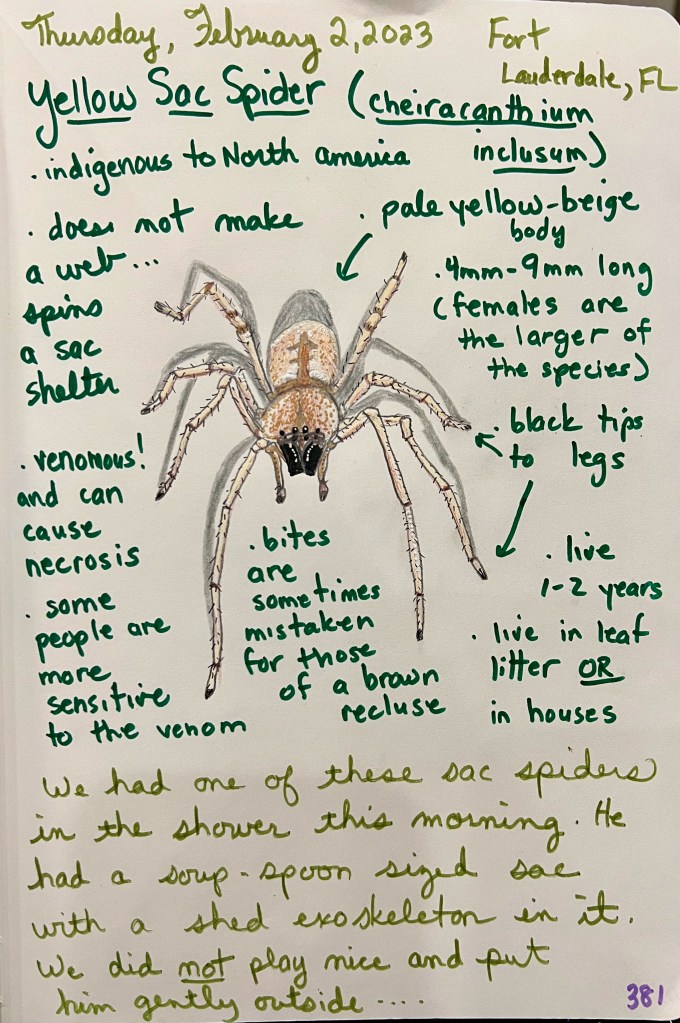 Thursday, February 2, 2023
Fort
Lauderdale, FL
Yellow Sac Spider (cheiracanthium
inclusum)
. indigenous to North america
. does not make
a web...
spins
a sac
shelter
. pale yellow-beige
body
. 4mm-9mm long
(females are
the larger of
the species)
. black tips
to legs
. venomous!
and can
cause
necrosis
. some
people are
more
sensitive
to the venom
. bites
are
sometimes
mistaken
for those
of a brown
recluse
. live
1-2 years
. live in leaf
litter OR
in houses
We had one of these sac spiders
in the shower this morning. He
had a soup-spoon sized sac
with a shed exoskeleton in it.
We did not play nice and put
him gently outside .....
381